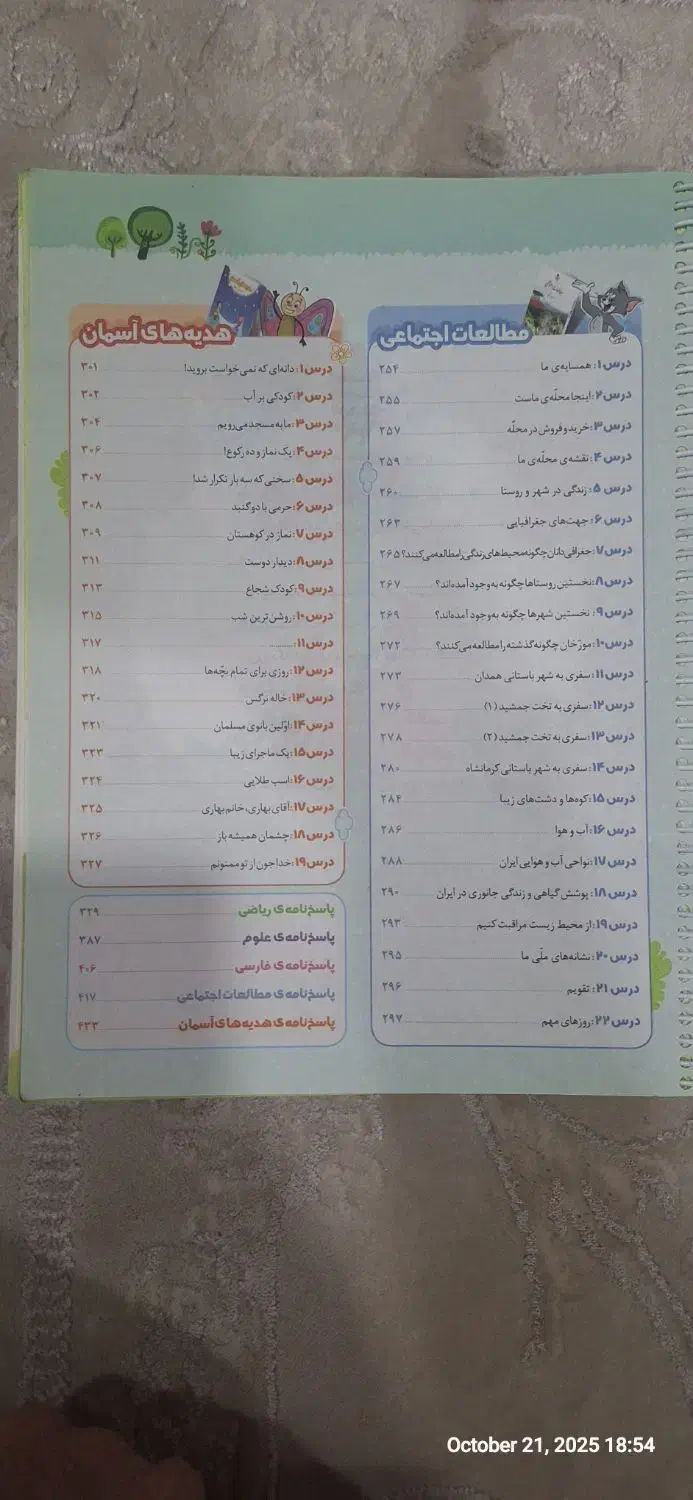 مطالعات اجتماعی
درس ۱: همسایه‌ی ما ۲۵۴
درس ۲: اینجا محلّه‌ی ماست ۲۵۵
درس ۳: خرید و فروش در محلّه ۲۵۷
درس ۴: نقشه‌ی محلّه‌ی ما ۲۵۹
درس ۵: زندگی در شهر و روستا ۲۶۰
درس ۶: جهت‌های جغرافیایی ۲۶۳
درس ۷: جغرافی‌دانان چگونه محیط‌های زندگی را مطالعه می‌کنند؟ ۲۶۵
درس ۸: نخستین روستاها چگونه به‌وجود آمده‌اند؟ ۲۶۷
درس ۹: نخستین شهرها چگونه به‌وجود آمده‌اند؟ ۲۶۹
درس ۱۰: مورّخان چگونه گذشته را مطالعه می‌کنند؟ ۲۷۲
درس ۱۱: سفری به شهر باستانی همدان ۲۷۳
درس ۱۲: سفری به تخت جمشید (۱) ۲۷۶
درس ۱۳: سفری به تخت جمشید (۲) ۲۷۸
درس ۱۴: سفری به شهر باستانی کرمانشاه ۲۸۰
درس ۱۵: کوه‌ها و دشت‌های زیبا ۲۸۴
درس ۱۶: آب و هوا ۲۸۶
درس ۱۷: نواحی آب و هوایی ایران ۲۸۸
درس ۱۸: پوشش گیاهی و زندگی جانوری در ایران ۲۹۰
درس ۱۹: از محیط زیست مراقبت کنیم ۲۹۳
درس ۲۰: نشانه‌های ملّی ما ۲۹۵
درس ۲۱: تقویم ۲۹۶
درس ۲۲: روزهای مهم ۲۹۷
هدیه‌های آسمان
درس ۱: دانه‌ای که نمی‌خواست بروید! ۳۰۱
درس ۲: کودکی بر آب ۳۰۲
درس ۳: ما به مسجد می‌رویم ۳۰۴
درس ۴: یک نماز و ده رکوع! ۳۰۶
درس ۵: سخنی که سه بار تکرار شد! ۳۰۷
درس ۶: حرمی با دو گنبد ۳۰۸
درس ۷: نماز در کوهستان ۳۰۹
درس ۸: دیدار دوست ۳۱۱
درس ۹: کودک شجاع ۳۱۳
درس ۱۰: روشن‌ترین شب ۳۱۵
درس ۱۱: .......... ۳۱۷
درس ۱۲: روزی برای تمام بچّه‌ها ۳۱۸
درس ۱۳: خاله نرگس ۳۲۰
درس ۱۴: اوّلین بانوی مسلمان ۳۲۱
درس ۱۵: یک ماجرای زیبا ۳۲۳
درس ۱۶: اسب طلایی ۳۲۴
درس ۱۷: آقای بهاری، خانم بهاری ۳۲۵
درس ۱۸: چشمان همیشه باز ۳۲۶
درس ۱۹: خدا جون از تو ممنونم ۳۲۷
پاسخ‌نامه‌ی ریاضی ۳۲۹
پاسخ‌نامه‌ی علوم ۳۸۷
پاسخ‌نامه‌ی فارسی ۴۰۶
پاسخ‌نامه‌ی مطالعات اجتماعی ۴۱۷
پاسخ‌نامه‌ی هدیه‌های آسمان ۴۳۳
October 21, 2025 18:54